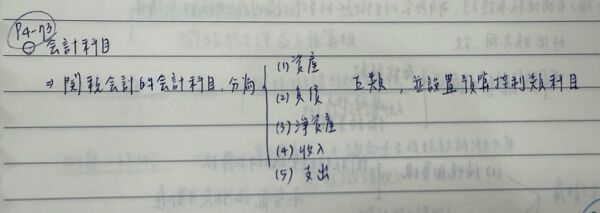 P4-73
㊀ 会計科目
⇒ 関税会計的会計科目,分為 (1) 資産 五類,並設置預算控制類科目
(2) 負債
(3) 淨資産
(4) 收入
(5) 支出